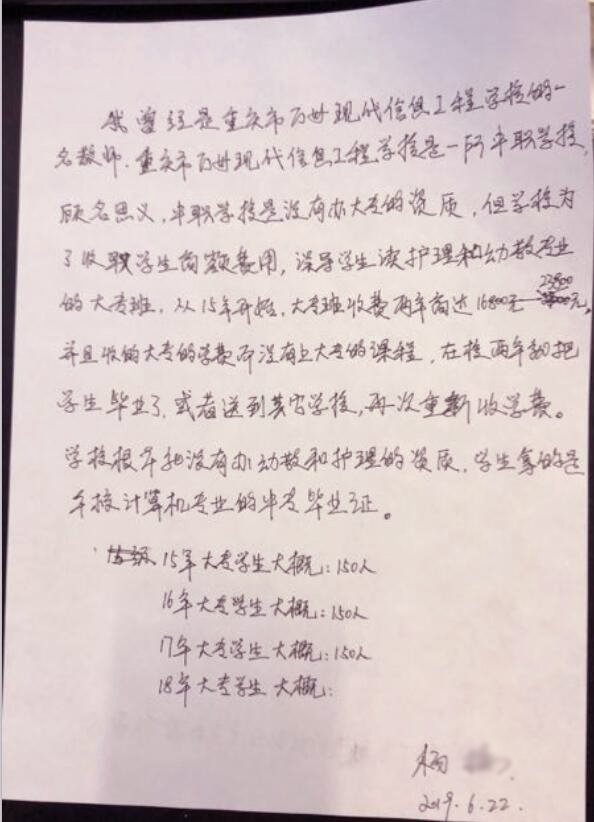 我曾经是重庆市万州现代信息工程学校的一
名教师.重庆市万州现代信息工程学校是一所中职学校,
顾名思义,中职学校是没有办大专的资质,但学校为
了收取学生高额费用,误导学生读护理和幼教专业
的大专班,从15年开始,大专班收费两年高达16800元—23800元。
并且收的大专的学费而没有上大专的课程,在校两年就把
学生毕业了,或者送到其它学校,再次重新收学费。
学校根本就没有办幼教和护理的资质,学生拿的是
本校计算机专业的中专毕业证。
15年大专学生大概:150人
16年大专学生大概:150人
17年大专学生大概:150人
18年大专学生大概:
杨
2019.6.22.